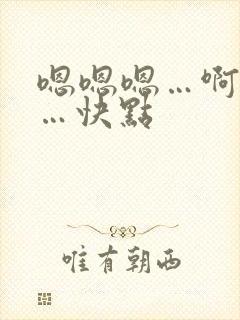 嗯嗯嗯…啊
…快點
唯有朝西